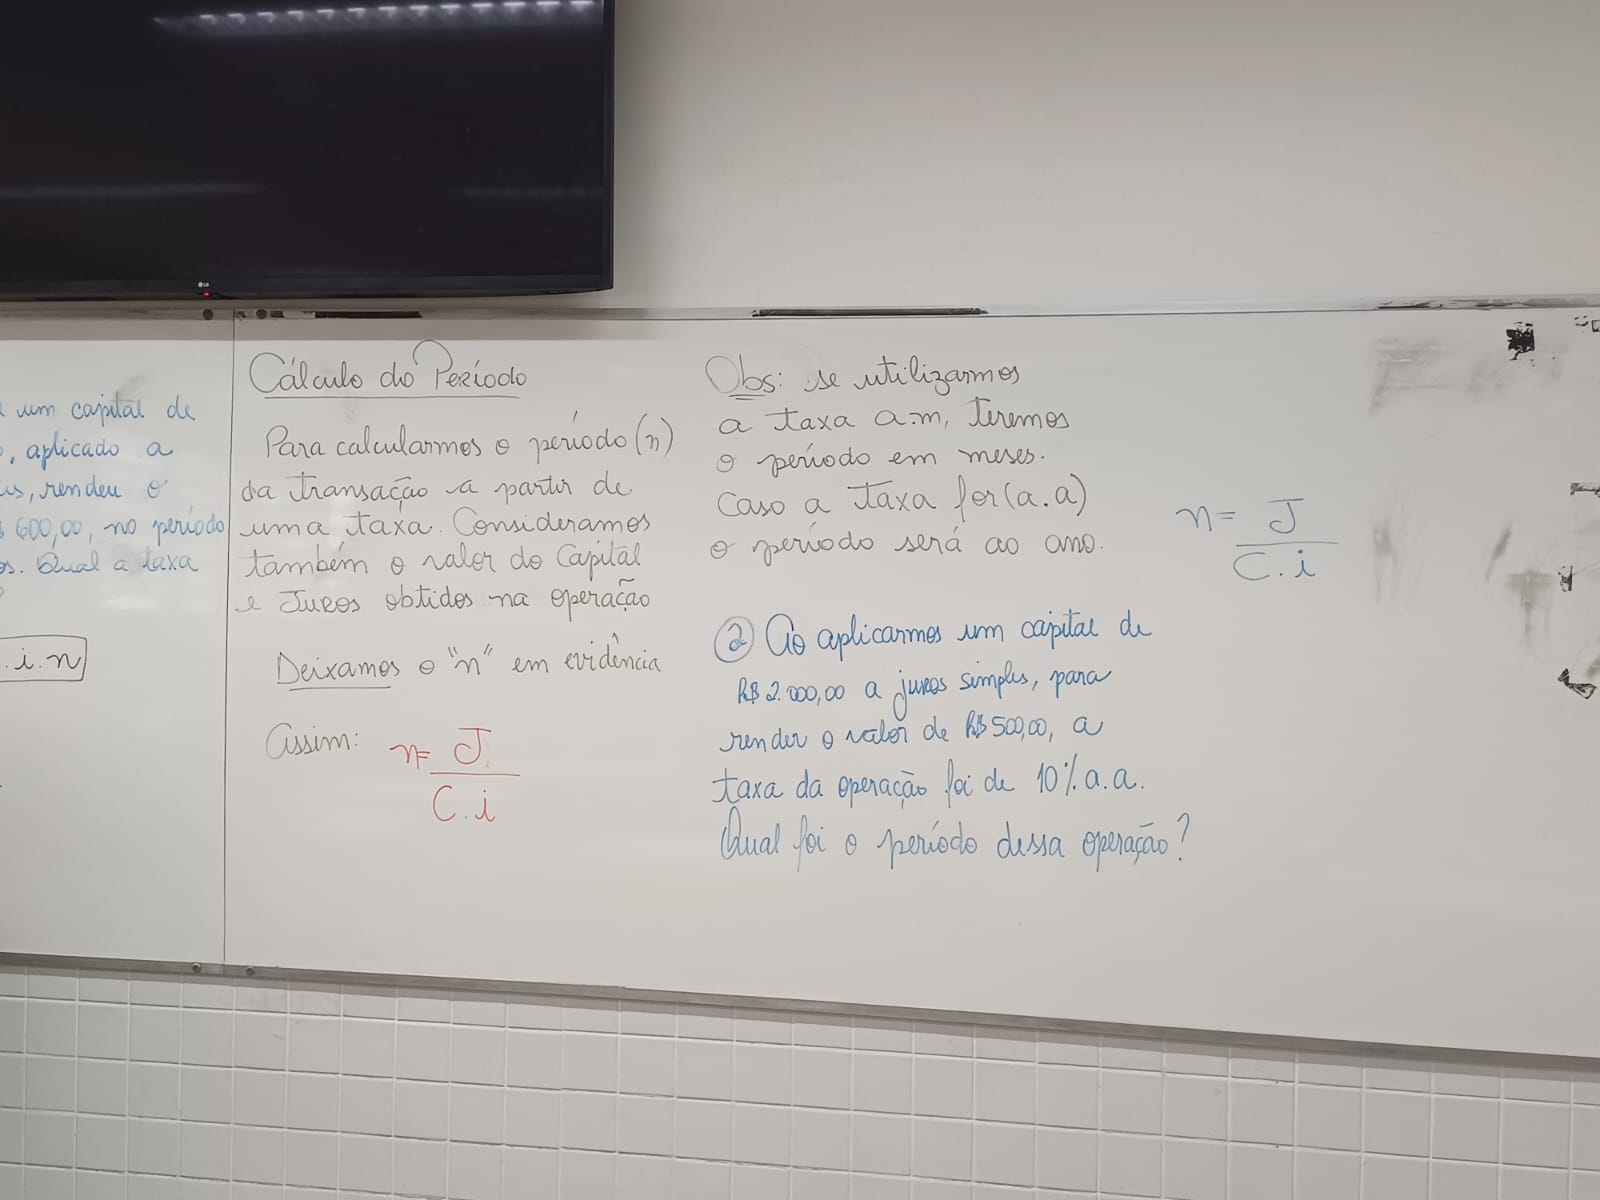 um capital de
, aplicado a
rendeu o
600,00, no período
Qual a taxa
. i. n
Cálculo do Período
Para calcularmos o período (n)
da transação a partir de
uma taxa. Consideramos
também o valor do Capital
e Juros obtidos na operação
Deixamos o "n" em evidência
Assim: n= J
C.i
Obs: se utilizarmos
a taxa a.m, teremos
o período em meses.
Caso a taxa for (a.a)
o período será ao ano.
n= J
C.i
② Ao aplicarmos um capital de
R$ 2.000,00 a juros simples, para
render o valor de R$ 500,00, a
taxa da operação foi de 10% a.a.
Qual foi o período dessa operação?
LG